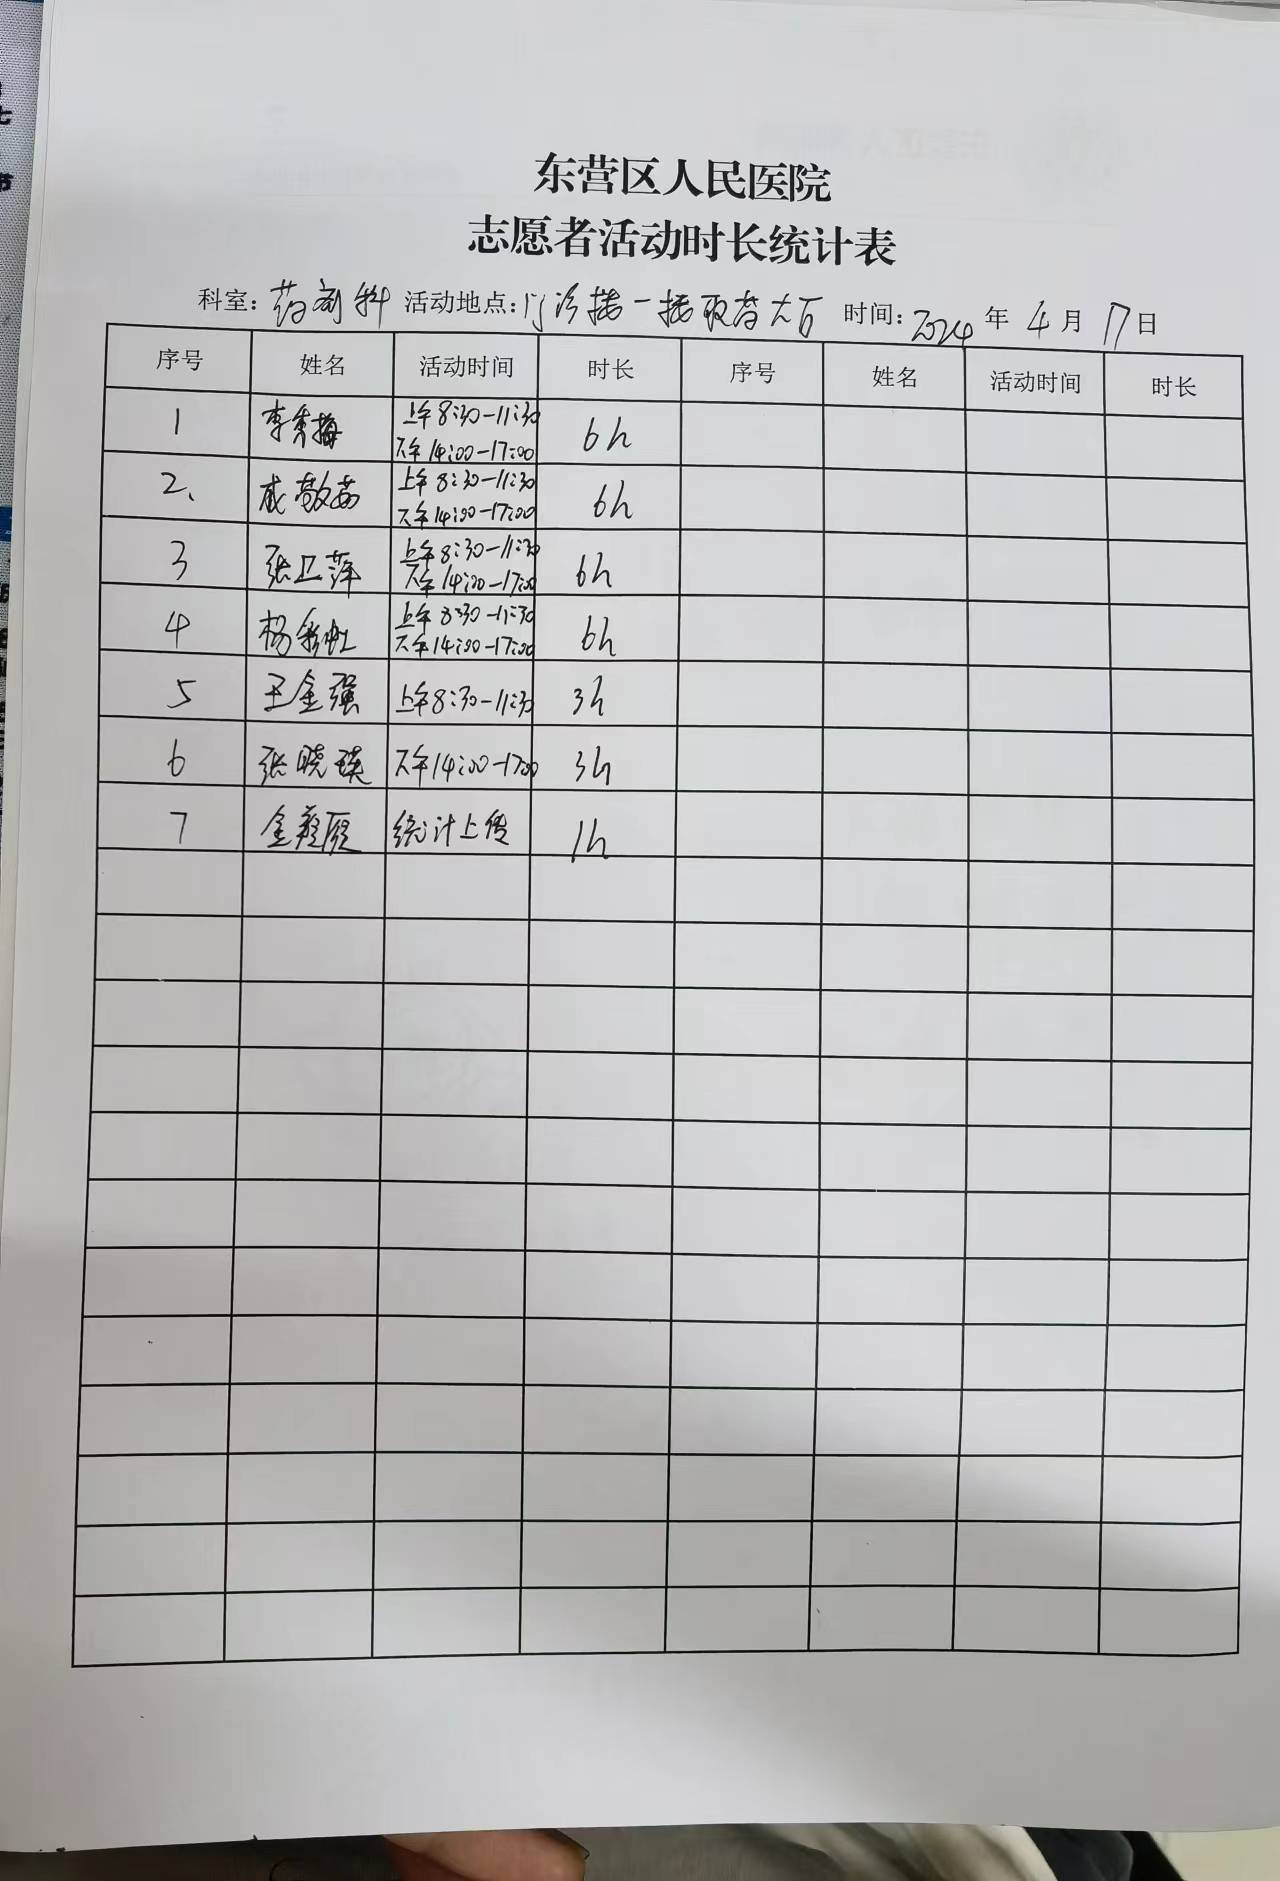 东营区人民医院
志愿者活动时长统计表
科室：药剂科 活动地点：门诊楼一楼取药大厅 时间：2024年4月17日
序号 姓名 活动时间 时长 序号 姓名 活动时间 时长
1 李秀梅 上午8:30-11:30 下午14:00-17:00 6h
2、 成敬茹 上午8:30-11:30 下午14:00-17:00 6h
3 张卫萍 上午8:30-11:30 下午14:00-17:00 6h
4 杨彩虹 上午8:30-11:30 下午14:00-17:00 6h
5 王金强 上午8:30-11:30 3h
6 张晓瑛 下午14:00-17:00 3h
7 统计上传 1h